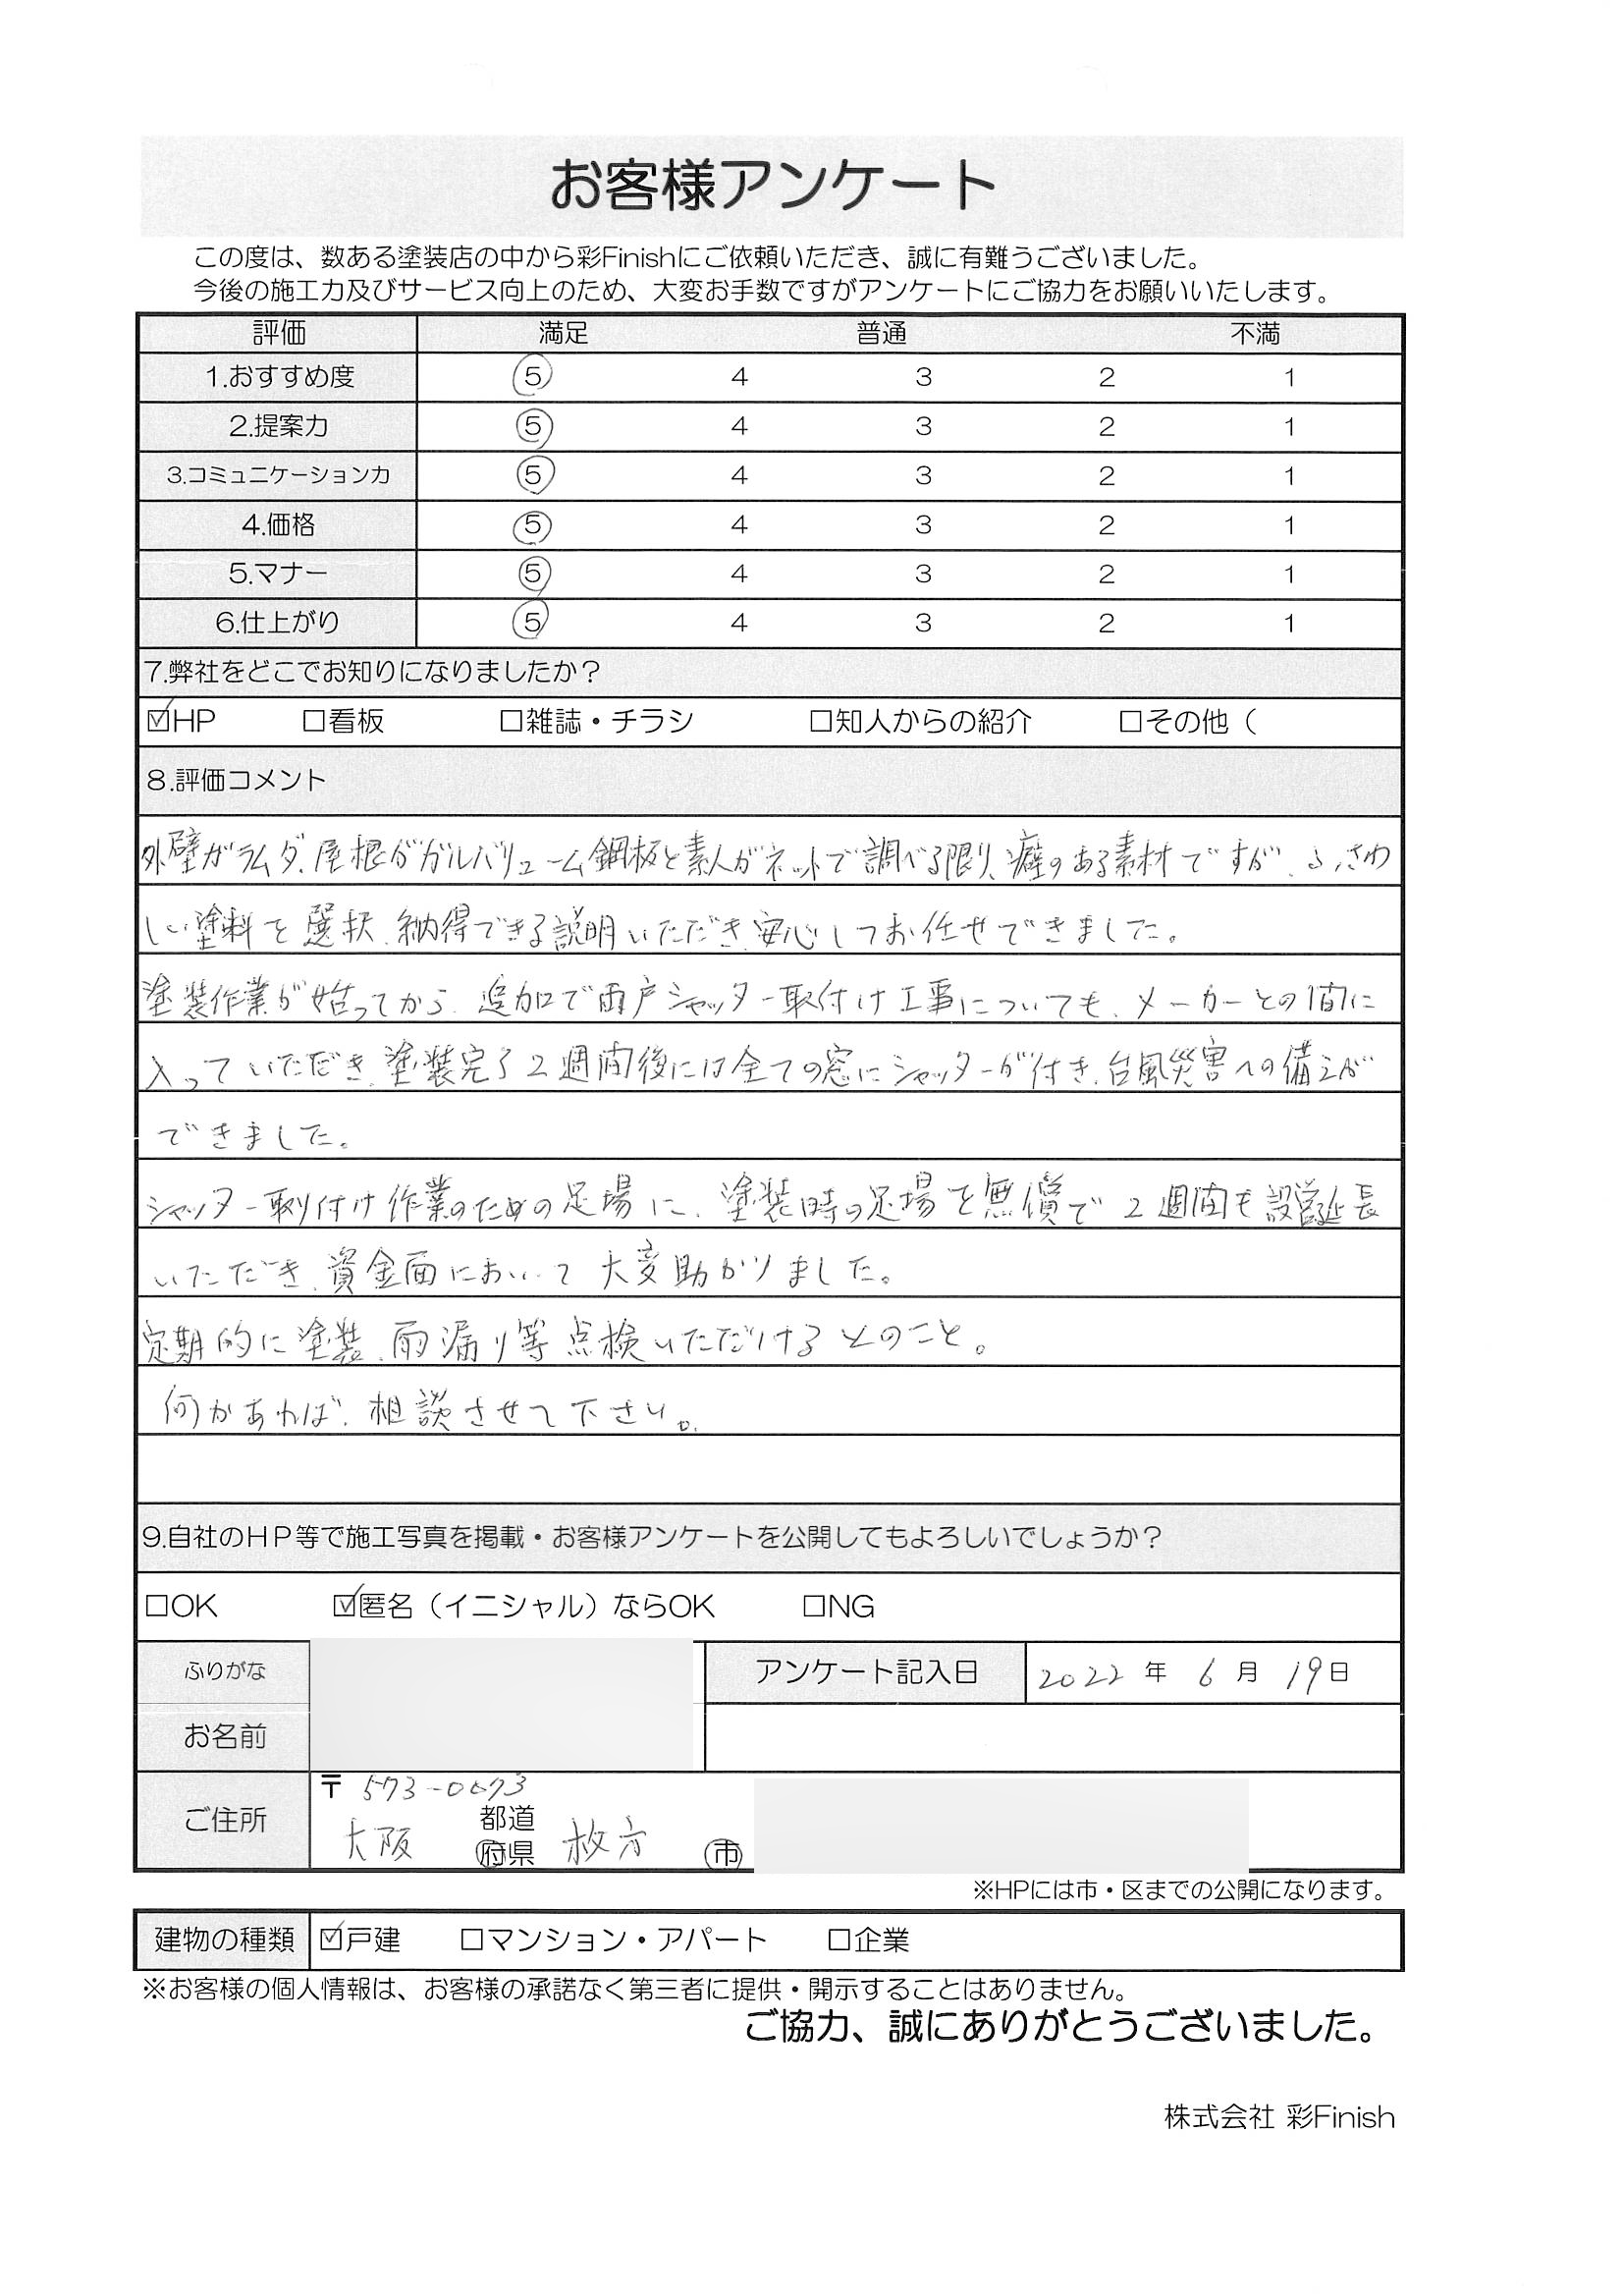 お客様アンケート
この度は、数ある塗装店の中から彩Finishにご依頼いただき、誠に有難うございました。
今後の施工力及びサービス向上のため、大変お手数ですがアンケートにご協力をお願いいたします。
評価 満足 普通 不満
1.おすすめ度 5 4 3 2 1
2.提案力 5 4 3 2 1
3.コミュニケーション力 5 4 3 2 1
4.価格 5 4 3 2 1
5.マナー 5 4 3 2 1
6.仕上がり 5 4 3 2 1
7.弊社をどこでお知りになりましたか？
☑HP □看板 □雑誌・チラシ □知人からの紹介 □その他（
8.評価コメント
外壁がラムダ、屋根がガルバリューム鋼板と素人がネットで調べる限り、癖のある素材ですが、ふさわ
しい塗料を選択、納得できる説明いただき、安心してお任せできました。
塗装作業が始ってから、追加で雨戸シャッター取付け工事についても、メーカーとの間に
入っていただき、塗装完了2週間後には全ての窓にシャッターが付き、台風災害への備えが
できました。
シャッター取り付け作業のための足場に、塗装時の足場を無償で2週間も設営延長
いただき、資金面において大変助かりました。
定期的に塗装、雨漏り等点検いただけるとのこと。
何かあれば、相談させて下さい。
9.自社のＨＰ等で施工写真を掲載・お客様アンケートを公開してもよろしいでしょうか？
□OK ☑匿名（イニシャル）ならOK □NG
ふりがな アンケート記入日 2022年 6月 19日
お名前
ご住所 〒 573-0073
都道
大阪 府県 枚方 市
※HPには市・区までの公開になります。
建物の種類 ☑戸建 □マンション・アパート □企業
※お客様の個人情報は、お客様の承諾なく第三者に提供・開示することはありません。
ご協力、誠にありがとうございました。
株式会社 彩Finish